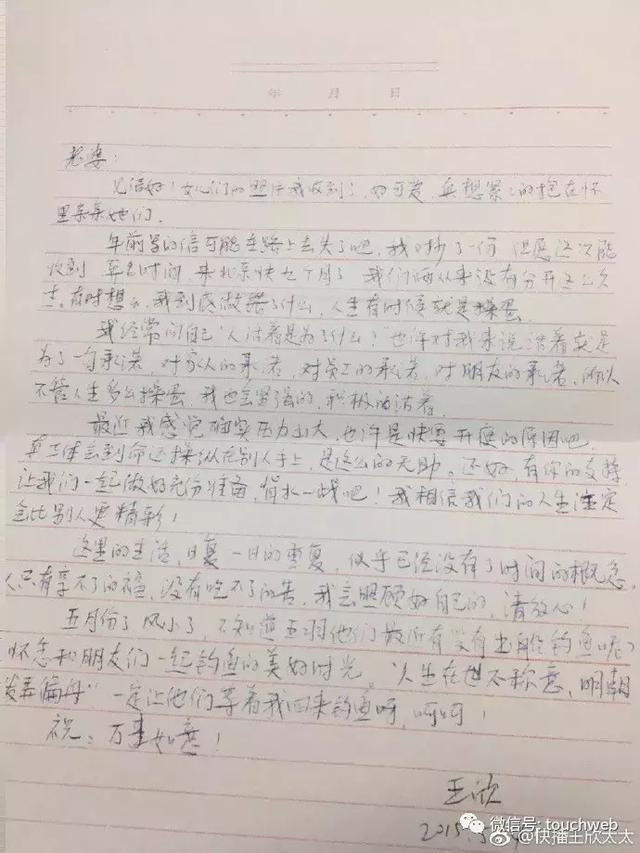 年 月 日
老婆:
见信好!女儿们的照片我收到了,好可爱,真想紧紧的抱在怀
里亲亲她们。
年前写的信可能在路上丢失了吧,我又抄了一份 但愿这次能
收到 草老时间 来北京快九个月了 我们俩从来没有分开这么久
过。有时想想,我到底做错了什么,人生有时候就是操蛋。
我经常问自己"人活着是为了什么?"也许对我来说 活着就是
为了一句承诺,对家人的承诺,对员工的承诺,对朋友的承诺,所以
不管人生多么操蛋,我也会坚强的,积极的活着。
最近我感觉确实压力山大,也许是快要开庭的原因吧,
真正体会到命运操纵在别人手上,是这么的无助。还好,有你的支持,
让我们一起做好充份准备,背水一战吧!我相信我们的人生注定
会比别人更精彩!
这里的生活,日复一日的重复,似乎已经没有了时间的概念。
人只有享不了的福,没有吃不了的苦,我会照顾好自己的,请放心!
五月份了 风小了,不知道五羽他们最近有没有出船钓鱼呢?
怀念和朋友们一起钓鱼的美好时光。"人生在世不称意,明朝
散弄扁舟"一定让他们等着我回来钓鱼呀,呵呵!
祝:万事如意!
王欣
2015.5.
微信号: touchweb
@快播王欣太太